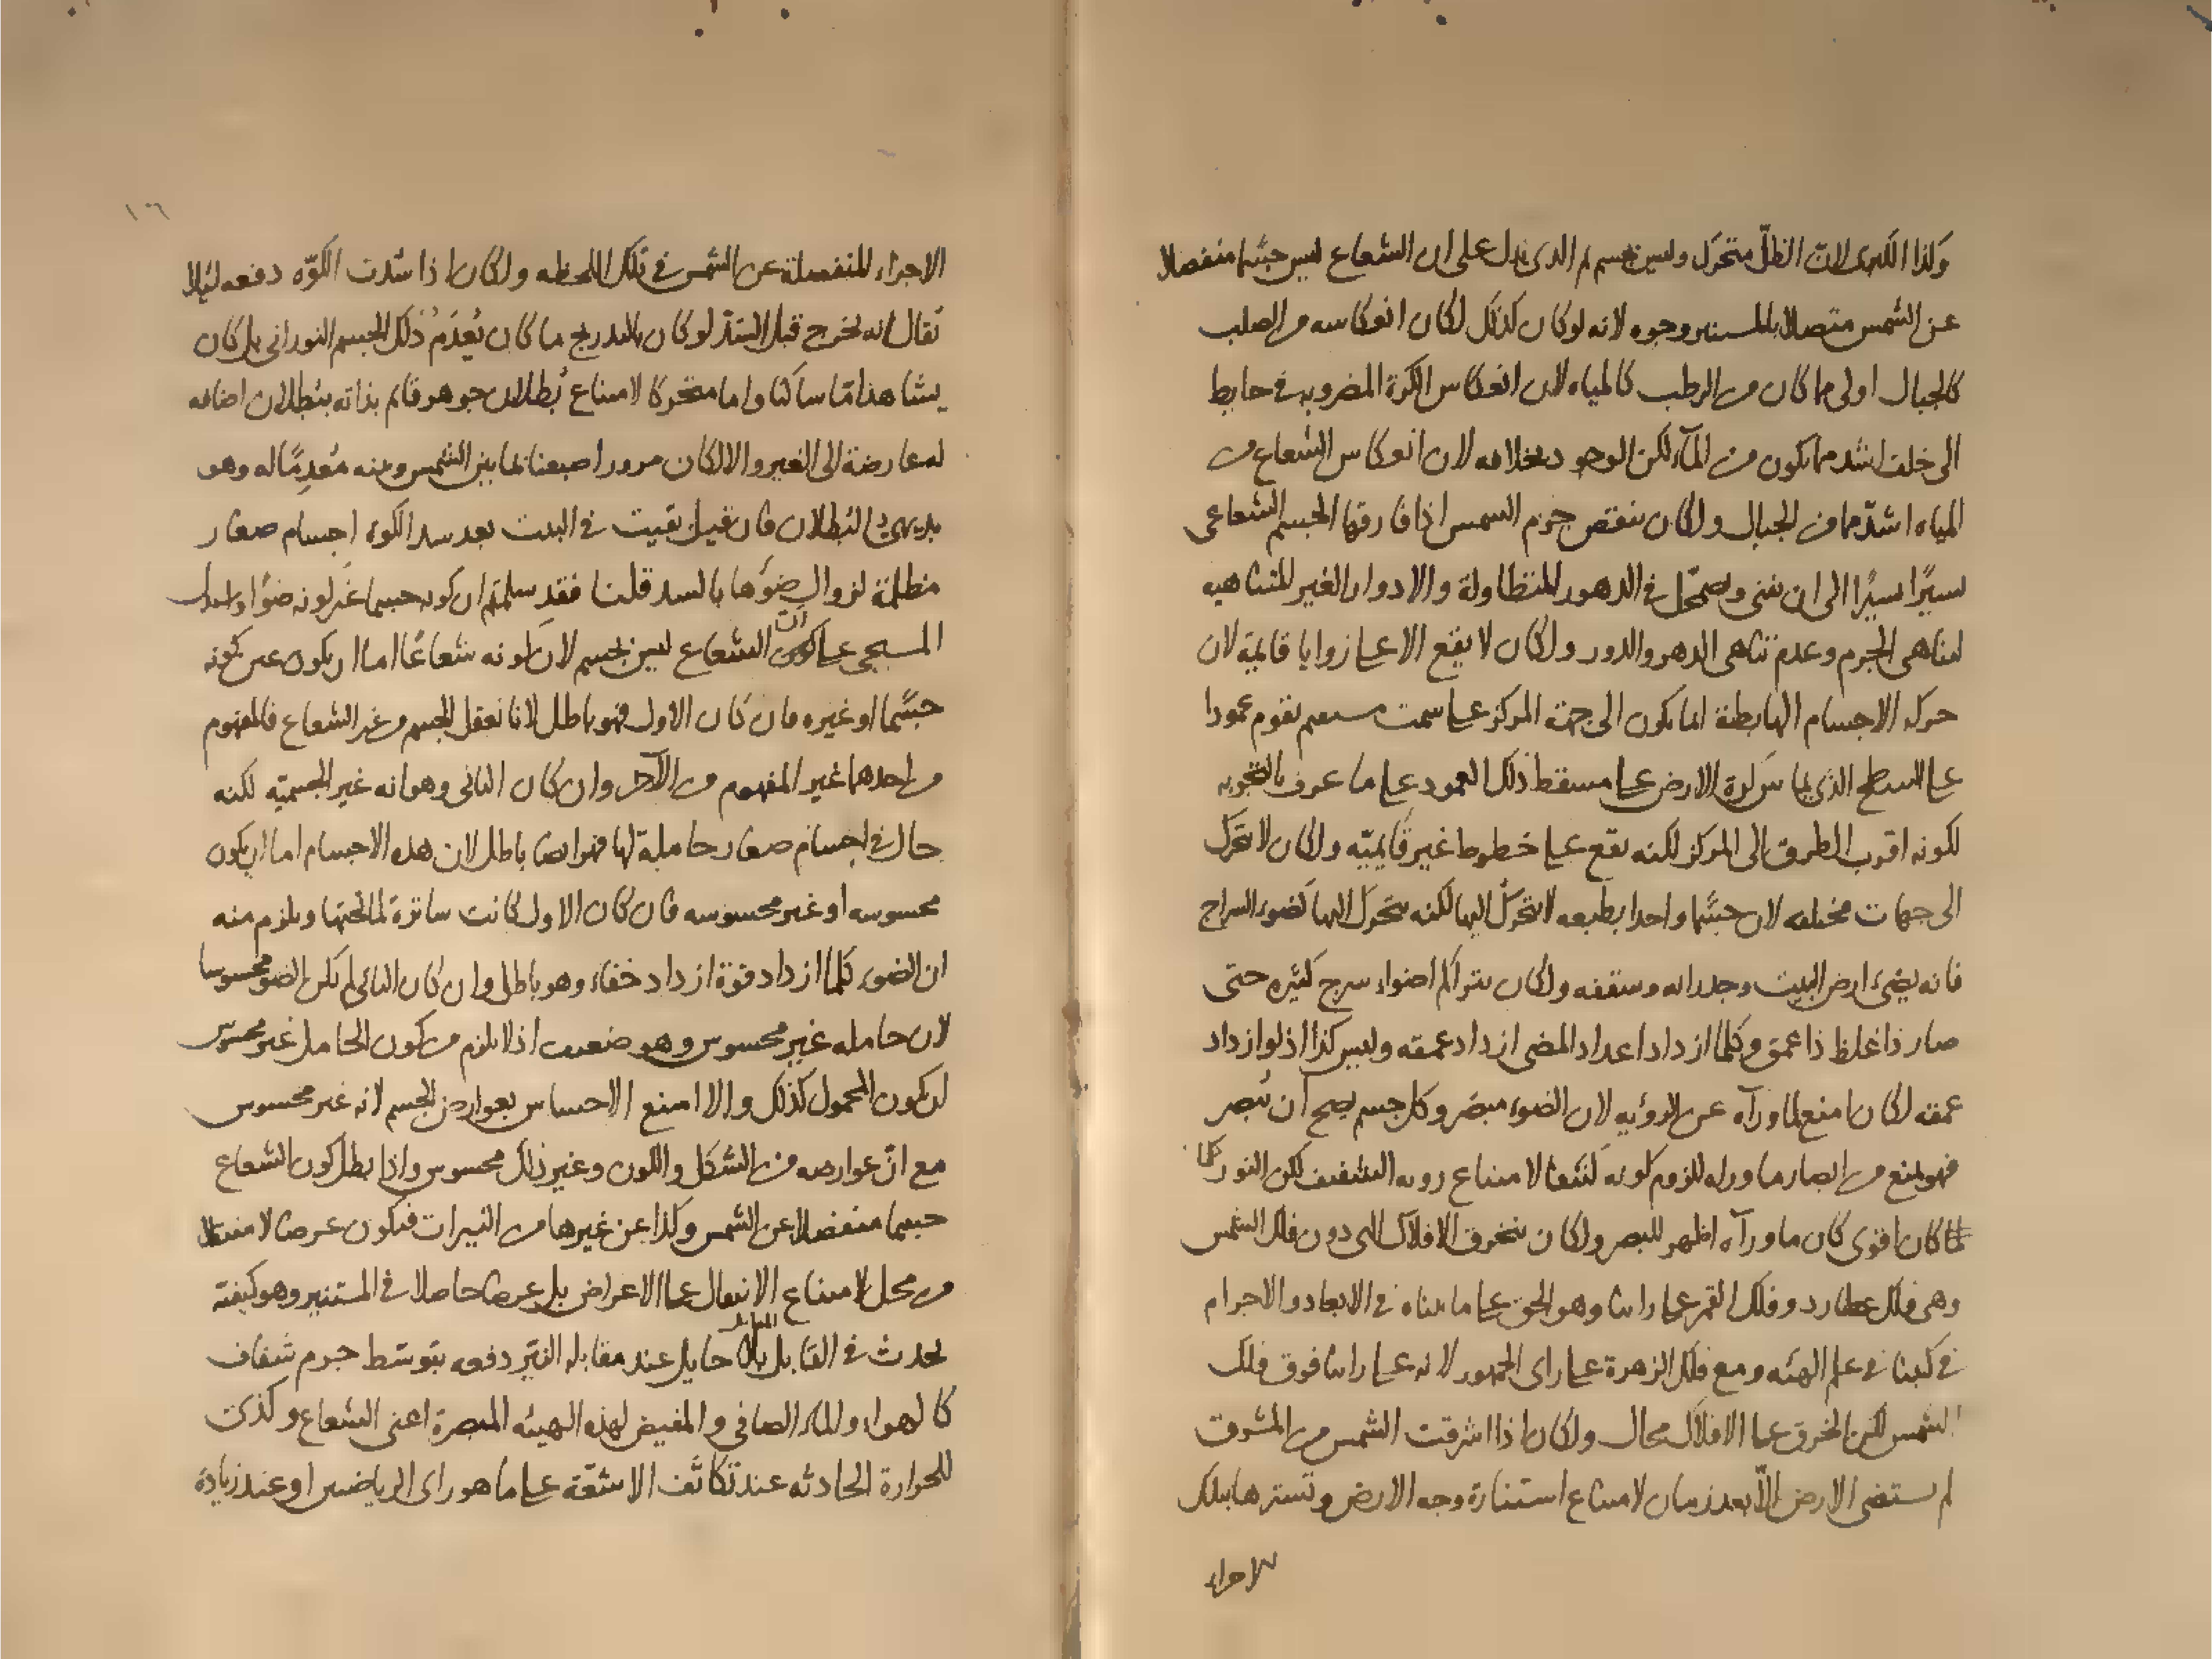 وكذا الكبرى لان الظلّ متحرك وليس بجسم ثم الذى يدل على ان الشعاع ليس جسما منفصلا
عن الشمس متصلا بالمستنير وجوه لانه لو كان كذلك لكان انعكاسه من الصلب
كالجبال اولى مما كان من الرطب كالمياه لان انعكاس الكرة المضروبه فى حايط
الى خلف اشد مما يكون من المآء لكن الوجود بخلافه لان انعكاس الشعاع من
المياه اشدّ مما من الجبال ولكان ينتقص جرم الشمس اذا فارقها الجسم الشعاعى
يسيرًا يسيرًا الى ان يفنى ويضمحّل فى الدهور المتطاولة والادوار الغير المتناهيه
لتناهى الجرم وعدم تناهى الدهر والدور ولكان لا يقع الا على زوايا قايمة لان
حركة الاجسام الهابطة انما يكون الى جهة المركز على سمت مستقيم يقوم عمودا
على السطح الذى يماس كرة الارض على مسقط ذلك العمود على ما عرف بالتجربه
لكونه اقرب الطرق الى المركز لكنه يقع على خطوط غير قايميّه ولكان لا يتحرك
الى جهات مختلفه لان جسما واحدا بطبعه لا يتحرّك اليها لكنه يتحرك اليها كضوء السراج
فانه يضىء ارض البيت وجدرانه وسقفه ولكان بتراكم اضواء سرج كثيره حتى
صار ذا غلظ ذا عمق وكلما ازداد اعداد المضى ازداد عمقه وليس كذا اذ لو ازداد
عمقه لكان امنع لما ورآه عن الرؤيه لان الضوء مبصر وكل جسم يصح ان يبصر
فهو يمنع من ابصار ما وراه للزوم كونه كثيفا لامتناع رويه الشفيف لكن النور كلما
كان اقوى كان ما ورآه اظهر للبصر ولكان ينخرق الافلاك التى دون فلك الشمس
وهى فلك عطارد وفلك القمر على راينا وهو الحق على ما بيناه فى الابعاد والاجرام
فى كتبنا فى علم الهيئه ومع فلك الزهرة على راى الجمهور لانه على راينا فوق فلك
الشمس لكن الخرق على الافلاك محال ولكان اذا اشرقت الشمس من المشرق
لم يستضى الارض الّا بعد زمان لامتناع استنارة وجه الارض وتسترها بتلك
الاجزاء
١٦
الاجزاء المنفصلة عن الشمس فى تلك اللحظه ولكان اذا سُدت الكوّه دفعه لئلا
يقال انه يخرج قبل السدّ لو كان بالتدريج ما كان يُعدَمُ ذلك الجسم النورانى بل كان
يشاهد امّا ساكنا واما متحركا لامتناع بُطلان جوهر قايم بذاته ببُطلان اضافه
له عارضة الى الغير والا لكان مرور اصبعنا فيما بين الشمس وبينه مُعدِمًا له وهو
بديهىّ البُطلان فان قيل بقيت فى البيت بعد سد الكوه اجسام صغار
مظلمة لزوال ضوءها بالسد قلنا فقد سلمتم ان كونه جسما غير كونه ضوأ واستدل
المسيحى على ان الشعاع ليس بجسم لان كونه شعاعًا اما ان يكون عين كونه
جسما او غيره فان كان الاول فهو باطل لانا نعقل الجسم من غير الشعاع فالمفهوم
من احدهما غير المفهوم من الآخر وان كان الثانى وهو انه غير الجسميّه لكنه
حال فى اجسام صغار حاملة لها فهو ايضا باطل لان هذه الاجسام اما ان يكون
محسوسه او غير محسوسه فان كان الاول كانت ساترة لما تحتها ويلزم منه
ان الضوء كلما ازداد قوة ازداد خفاء وهو باطل وان كان الثانى لم يكن الضو محسوسا
لان حامله غير محسوس وهو ضعيف اذ لا يلزم من كون الحامل غير محسوس
ان يكون المحمول كذلك والا امتنع الاحساس بعوارض الجسم لانه غير محسوس
مع انّ عوارضه من الشكل واللون وغير ذلك محسوس واذا بطل كون الشعاع
جسما منفصلا عن الشمس وكذا عن غيرها من النيرات فيكون عرضا لا منتقلا
من محل لامتناع الانتقال على الاعراض بل عرضا حاصلا فى المستنير وهو كيفية
تحدث فى القابل بلا حايل عند مقابله النيّر دفعه بتوسّط جرم شفاف
كالهواء والماء الصافى والمفيض لهذه الهيئه المبصرة اعنى الشعاع وكذلك
للحرارة الحادثه عند تكاثف الاشعّة على ما هو راى الرياضيين او عند زيادة